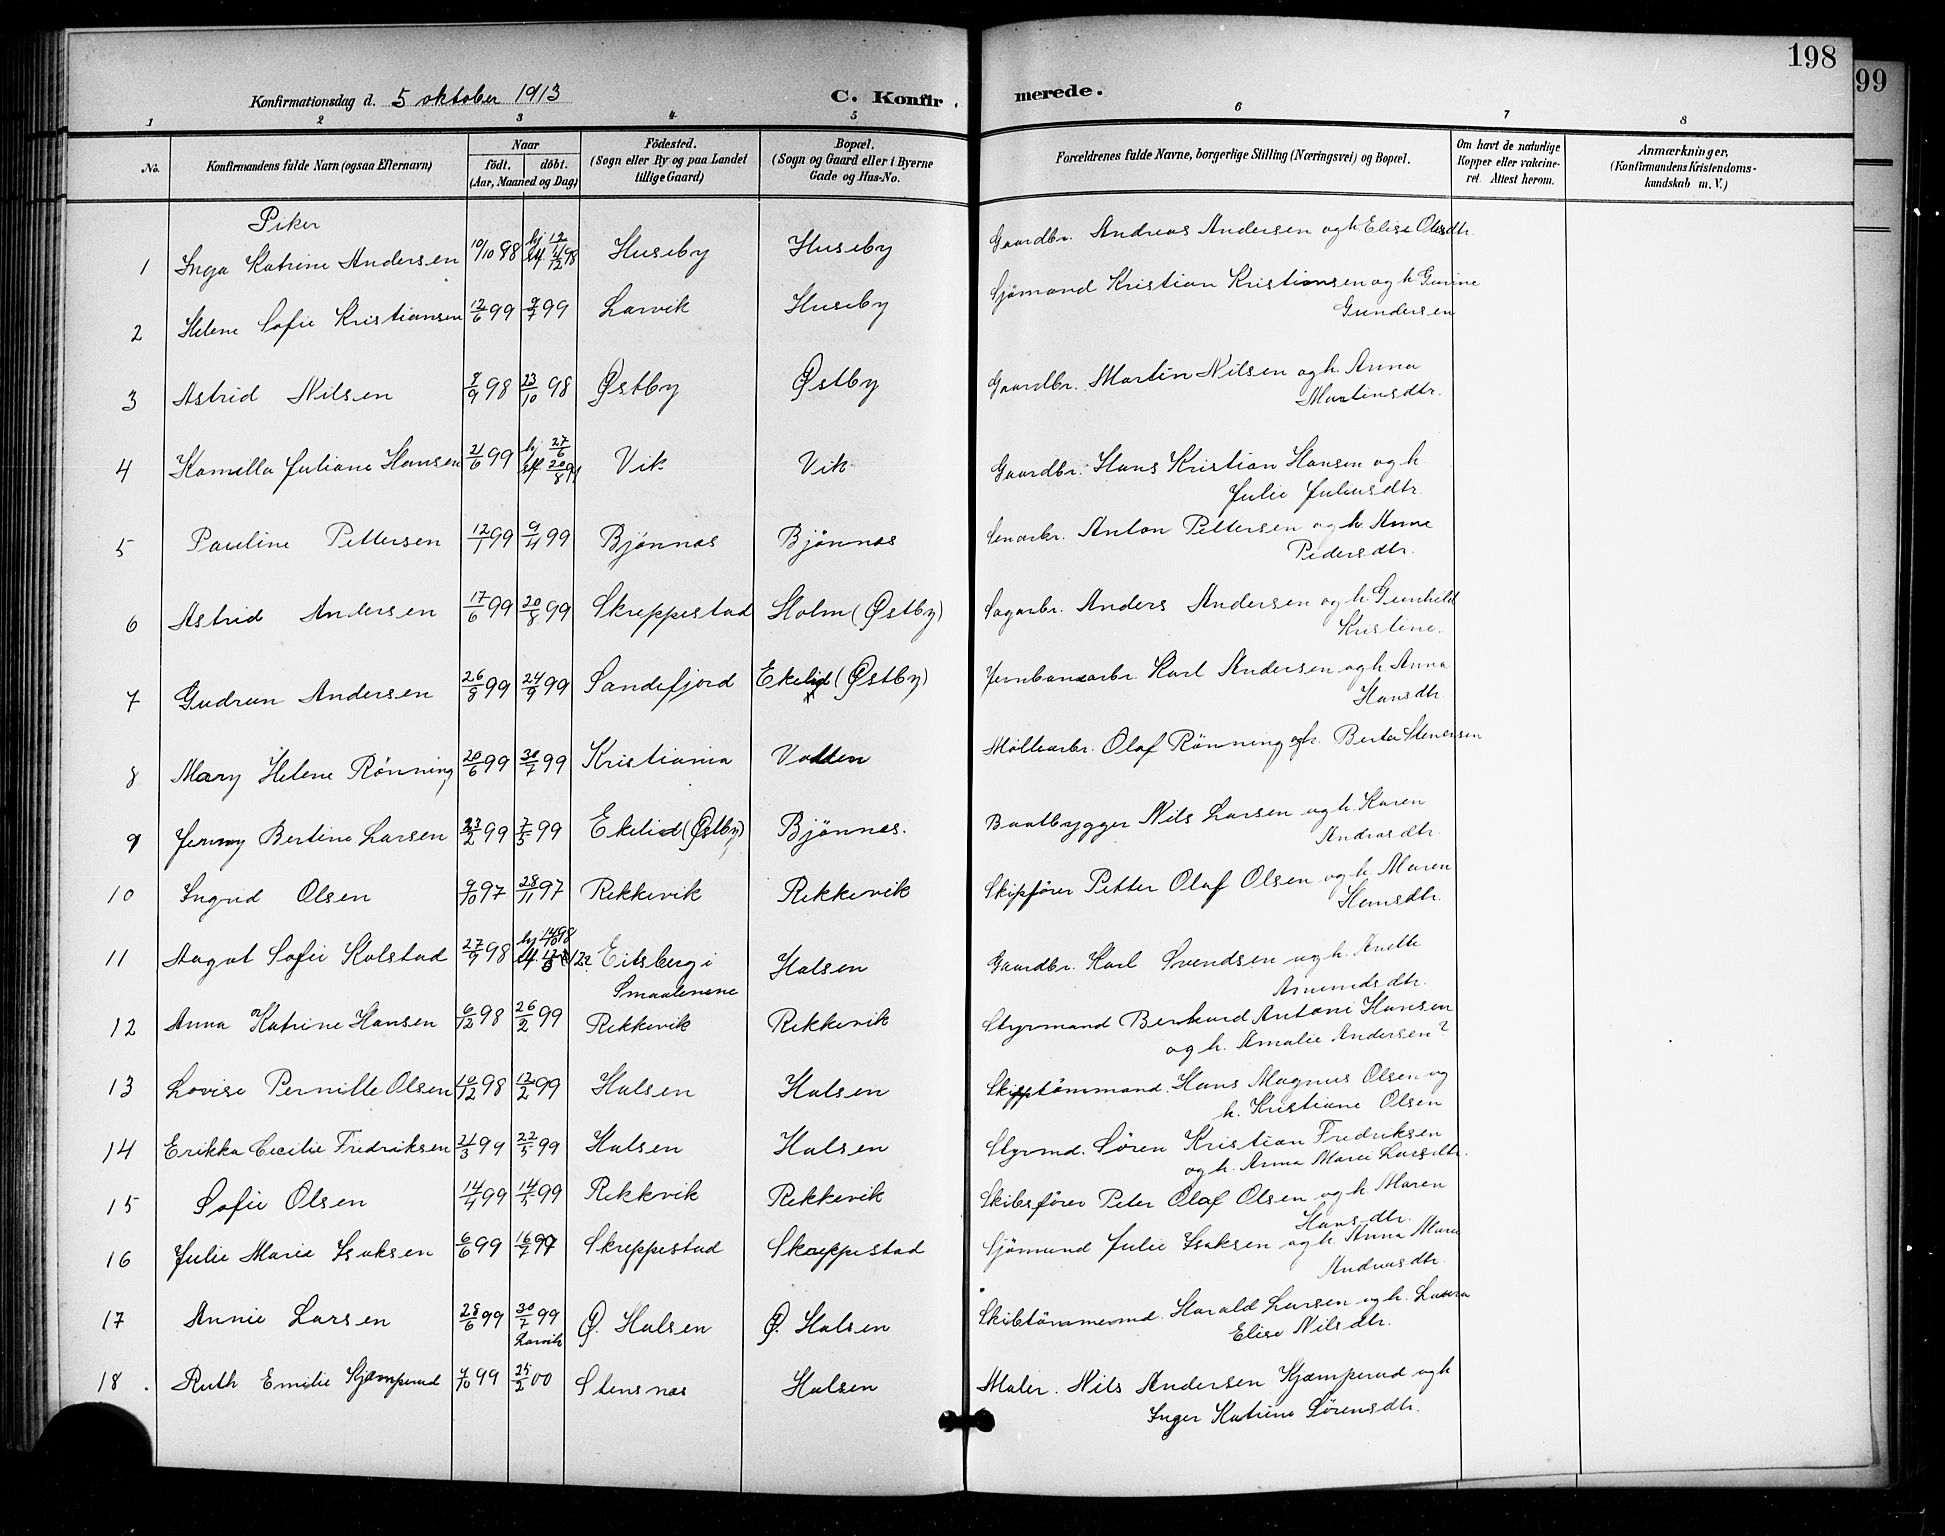 198
99
Konfirmationsdag d. 5 oktober 1913 C. Konfir merede.
1 2 3 4 5 6 7 8
No. Konfirmandens fulde Navn (ogsaa Efternavn) Naar født. døbt. (Aar, Maaned og Dag) Fødested. (Sogn eller By og paa Landet tillige Gaard) Bopæl. (Sogn og Gaard eller i Byerne Gade og Hus-No. Forældrenes fulde Navne, borgerlige Stilling (Næringsvei) og Bopæl. Om havt de naturlige Kopper eller vakcineret. Attest herom. Anmærkninger, (Konfirmandens Kristendomskundskab m. V.)
Piker
1 Inga Katrine Andersen 10/10 98 hj 12/11 stf 4/12 98 Huseby Huseby Gaardbr. Andreas Andersen og h. Elise Olsdtr.
2 Helene Sofie Kristiansen 12/6 99 9/7 99 Larvik Huseby Sjømand Kristian Kristiansen og h. Gurine
Gundersen
3 Astrid Nilsen 8/9 98 23/10 98 Østby Østby Gaardbr. Martin Nilsen og h. Anna
Martinsdtr.
4 Kamilla Juliane Hansen 21/6 99 hj 27/6 stf 20/8 99 Vik Vik Gaardbr. Hans Kristian Hansen og h
Julie Juliusdtr.
5 Pauline Pettersen 12/1 99 9/4 99 Bjønnes Bjønnes Anton Pettersen og h. Anne
Pedersdtr.
6 Astrid Andersen 17/6 99 20/8 99 Skreppestad Holm (Østby) Sagarbr. Anders Andersen og h. Gunhild
Kristine.
7 Gudrun Andersen 26/8 99 24/9 99 Sandefjord Ekelid (Østby) Jernbanearbr. Karl Andersen og h. Anna
Hansdtr.
8 Mary Helene Rønning 20/6 99 30/7 99 Kristiania Vadden Møllearbr. Olaf Rønning og h. Berta Stenersen
9 Jenny Bertine Larsen 23/2 99 7/5 99 Ekelid (Østby) Bjønnes. Baatbygger Nils Larsen og h. Karen
Andreasdtr.
10 Ingrid Olsen 9/10 97 28/11 97 Rekkevik Rekkevik Skipfører Petter Olaf Olsen og h. Maren
Hansdtr.
11 Aagot Sofie Kolstad 27/9 98 hj 14/10 98 Eitsberg i Halsen Gaardbr. Karl Svendsen og h. Anette
Smaalenene Amundsdtr.
12 Anna Katrine Hansen 6/12 98 26/2 99 Rekkevik Rekkevik Styrmand Bernhard Antoni Hansen
og h. Amalie Andersen?
13 Lovise Pernille Olsen 10/12 98 12/2 99 Halsen Halsen Skipstømmand. Hans Magnus Olsen og
h. Kristiane Olsen
14 Erikka Cecilie Fredriksen 21/3 99 22/5 99 Halsen Halsen Styrmd. Søren Kristian Fredriksen
og h. Anna Marie Larsdtr.
15 Sofie Olsen 14/4 99 14/5 99 Rekkvik Rekkevik Skibsfører Peter Olaf Olsen og h. Maren
Hansdtr.
16 Julie Marie Isaksen 6/6 99 16/7 99 Skreppestad Skreppestad Sjømand Julie Isaksen og h. Anna Marie
Andreasdtr.
17 Annie Larsen 28/6 99 30/7 99 Larvik Ø. Halsen Ø. Halsen Skibtømmermd. Harald Larsen og h. Laura
Elise Nilsdtr.
18. Ruth Emilie Kjæmperud 4/10 99 25/2 00 Stensnes Halsen Maler. Nils Andersen Kjæmperud og h
Inger Katrine Sørensdtr.